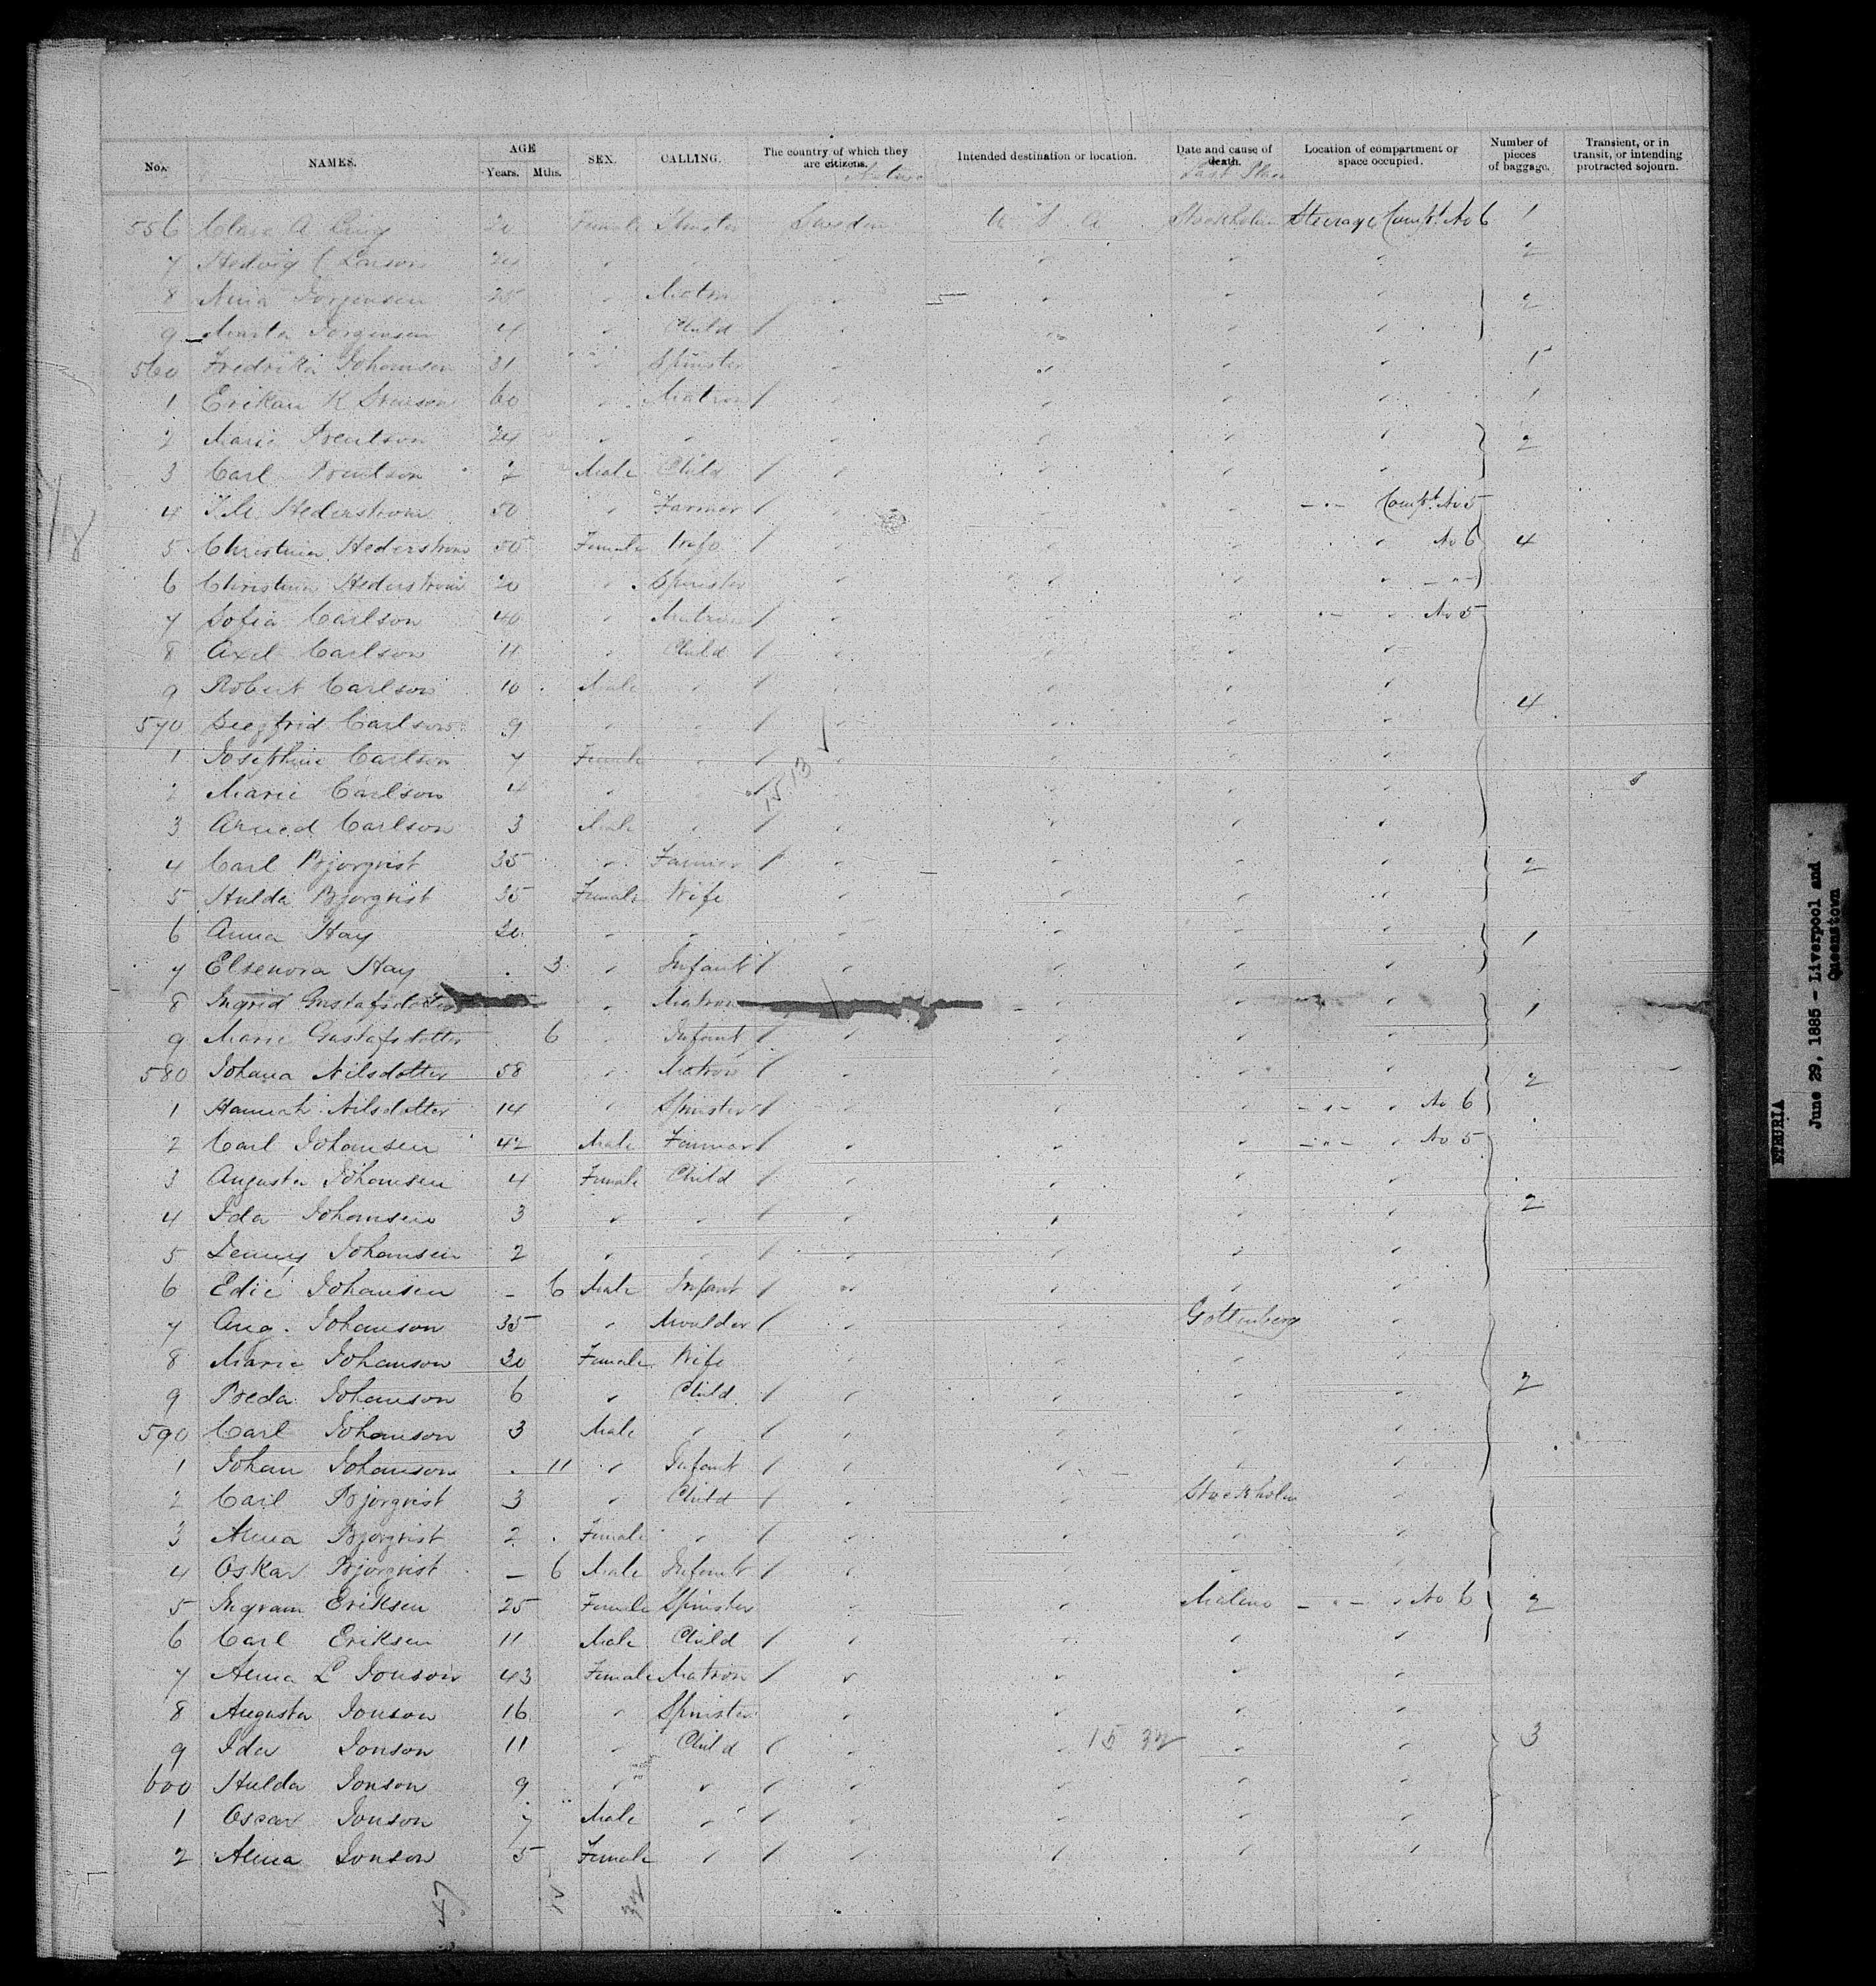 No. NAMES. AGE Years. Mths. SEX. CALLING. The country of which they are citizens. Intended destination or location. Date and cause of death. Last Place Location of compartment or space occupied. Number of pieces of baggage. Transient, or in transit, or intending protracted sojourn.
556 Clara A 20 Female Spinster Sweden U S A Stockholm Steerage Compt. No 6 1
7 Hedvig C 24 " " " " " " 2
8 Jorgensen 25 " Matron " " " " 2
9 Jorgensen 4 " Child / " " " "
560 Fredrika Johanson 31 " Spinster " " " " 1
1 K 60 " Matron / " " " " 1
2 Marie 24 " " " " " " 2
3 Carl 2 Male Child / " " " "
4 Hederstrom 50 " Farmer / " " " - " - Compt. No 5
5 Christina Hederstrom 50 Female Wife / " " " " No 6 4
6 Christina Hederstrom 20 " Spinster " " " " - " -
7 Sofia Carlson 40 " Matron / " " " " - " No 5
8 Axel Carlson 11 " Child / " " " "
9 Robert Carlson 10 Male " / " " " "
570 Siegfrid Carlson 9 " " / " " " " 4
1 Josephine Carlson 7 Female " / " " " "
2 Marie Carlson 4 " " / 15 13 " " "
3 Carlson 3 Male " / " " " "
4 Carl Bjorqvist 35 " Farmer / " " " " 2
5 Hulda Bjorqvist 35 Female Wife " " " "
6 Anna Hay 20 " " " " " " 1
7 Elsenora Hay 3 " Infant / " " " "
8 Ingrid Gustafsdotter " Matron " " " 1
9 Marie Gustafsdotter 6 " Infant / " " " "
580 Johana Nilsdotter 58 " Matron / " " " " 2
1 Hannah Nilsdotter 14 " Spinster / " " " - " - " No 6
2 Carl Johansen 42 Male Farmer / " " " - " - " No 5
3 Augusta Johansen 4 Female Child / " " " "
4 Ida Johansen 3 " " / " " " " 2
5 Jenny Johansen 2 " " / " " " "
6 Edie Johansen - 6 Male Infant / " " " "
7 Aug. Johanson 35 " Moulder / " " Gottenberg "
8 Marie Johanson 30 Female Wife " " " "
9 Johanson 6 " Child / " " " " 2
590 Carl Johanson 3 Male " / " " " "
1 Johan Johanson 11 " Infant / " " " "
2 Carl Bjorqvist 3 " Child / " " Stockholm "
3 Alma Bjorqvist 2 Female " / " " " "
4 Oskar Bjorqvist - 6 Male Infant / " " " "
5 Ingram Eriksen 25 Female Spinster " " Malmo - " - " No 6 2
6 Carl Eriksen 11 Male Child / " " " "
7 L Jonson 43 Female Matron / " " " "
8 Augusta Jonson 16 " Spinster " " " "
9 Ida Jonson 11 " Child / " " 15 32 " " 3
600 Hulda Jonson 9 " " / " " " "
1 Oscar Jonson 7 Male " / " " " "
2 Alma Jonson 5 Female " / " " " "
47 15 32
ETRURIA
June 29, 1885 - Liverpool and
Queenstown